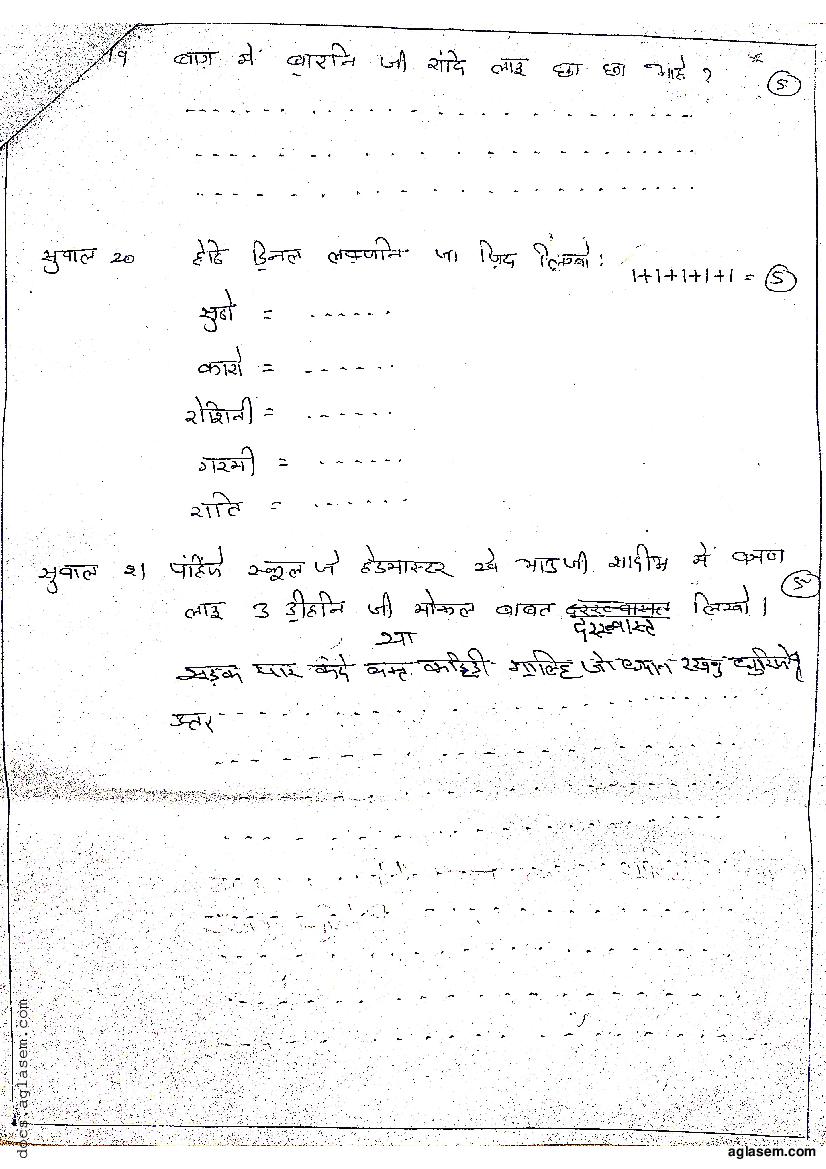 19 बाग़ में बारनि जी रांदि लाइ छा छा आहे ?
(5)
सुवाल 20 हेठि ड्रिनल लफ़्ज़नि जा ज़िद लिखो !
1+1+1+1+1 = (5)
सुठो = ......
कारो = ......
रोशिनी = ......
गरमी = ......
राति = ......
सुवाल 21 पंहिंजे स्कूल जे हेडमास्टर खे भाउ जी शादीअ में वञण
(5)
लाइ 3 ड्रीहनि जी मोकल बाबत दरख़्वास्त लिखो ।
या
सड़क पार कंदे वक्त गाल्हि जो ध्यान रखणु
उतर
docs.aglasem.com
aglasem.com